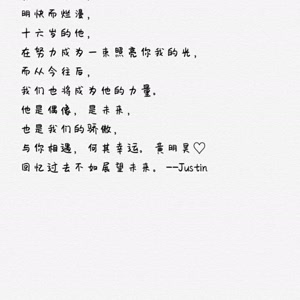 明快而烂漫，
十六岁的他，
在努力成为一束照亮你我的光，
而从今往后，
我们也将成为他的力量。
他是偶像，是未来，
也是我们的骄傲，
与你相遇，何其幸运。黄明昊♡
回忆过去不如展望未来。--Justin